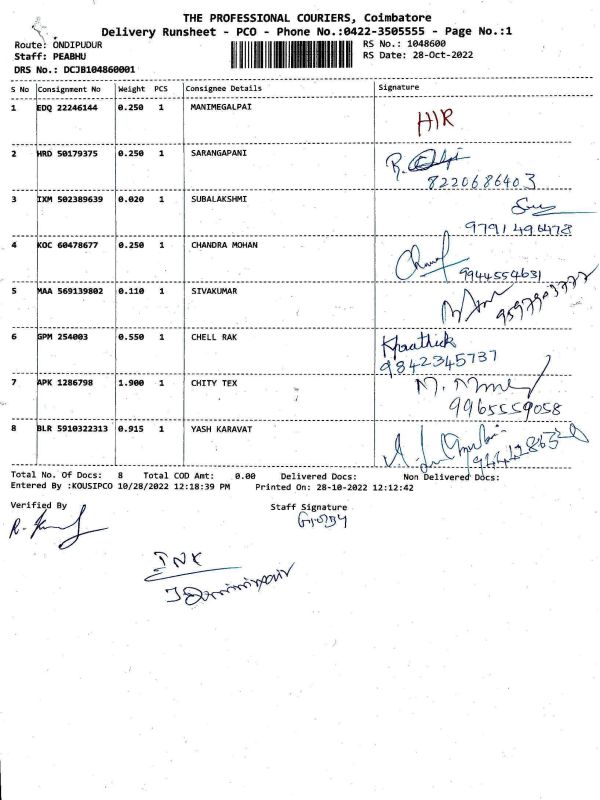 THE PROFESSIONAL COURIERS, Coimbatore
Delivery Runsheet - PCO - Phone No.:0422-3505555 - Page No.:1
Route: ONDIPUDUR RS No.: 1048600
Staff: PEABHU RS Date: 28-Oct-2022
DRS No.: DCJB104860001
S No Consignment No Weight PCS Consignee Details Signature
1 EDQ 22246144 0.250 1 MANIMEGALPAI
H/R
2 HRD 50179375 0.250 1 SARANGAPANI
8220686403
3 IXM 502389639 0.020 1 SUBALAKSHMI
9791496478
4 KOC 60478677 0.250 1 CHANDRA MOHAN
9944554631
5 MAA 569139802 0.110 1 SIVAKUMAR
6 GPM 254003 0.550 1 CHELL RAK
Kharthick
9842345737
7 APK 1286798 1.900 1 CHITY TEX
9965559058
8 BLR 5910322313 0.915 1 YASH KARAVAT
Total No. Of Docs: 8 Total COD Amt: 0.00 Delivered Docs: Non Delivered Docs:
Entered By :KOUSIPCO 10/28/2022 12:18:39 PM Printed On: 28-10-2022 12:12:42
Verified By Staff Signature
INK